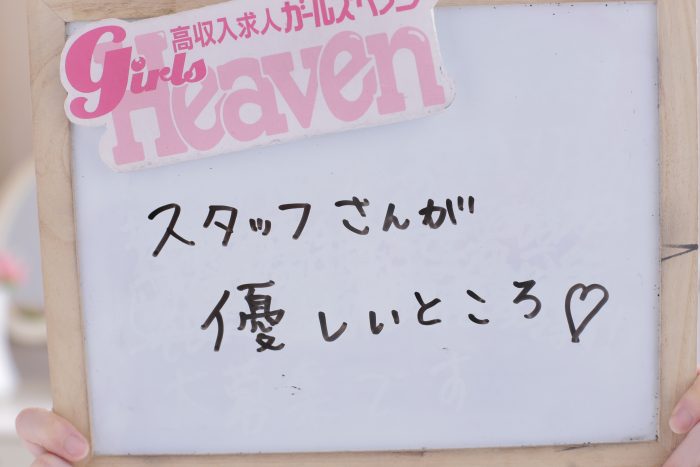 高収入求人ガールズヘブン
Girls Heaven
スタッフさんが
優しいところ♡